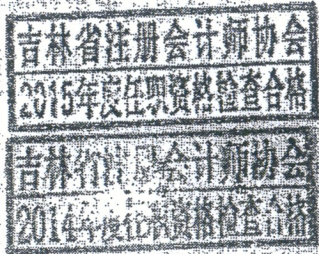 吉林省注册会计师协会
2015年度任职资格检查合格
吉林省注册会计师协会
2014年度任职资格检查合格